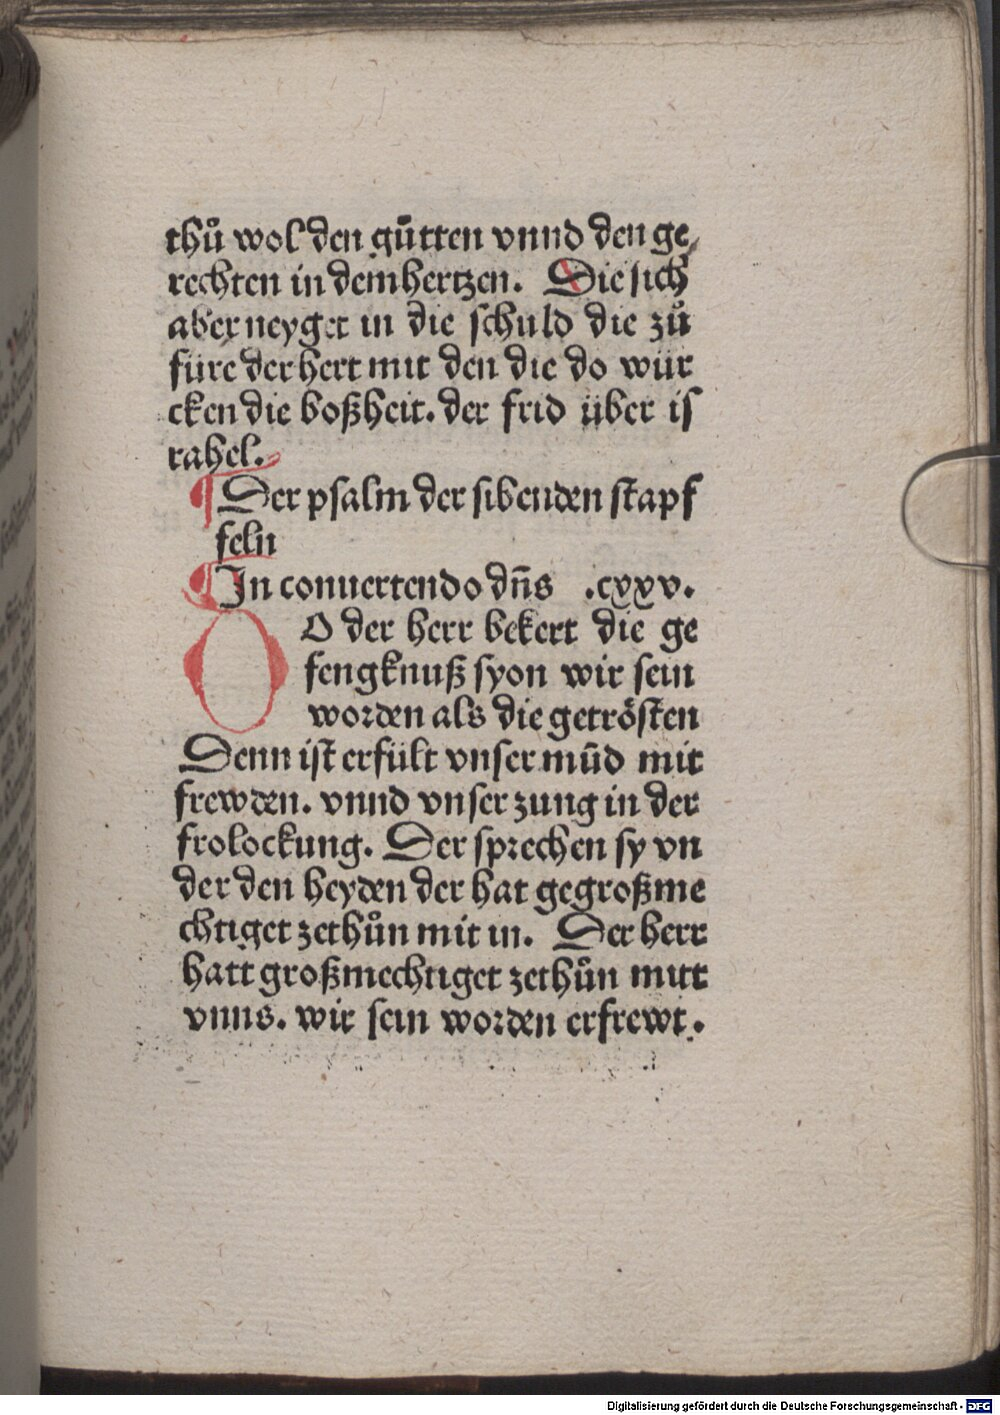 thů wol den gūtten vnnd den ge⸗
rechten in dem hertzen. Die sich
aber neyget in die schuld die zů
füre der hert mit den die do wür
cken die boßheit. der frid über is
rahel.
¶ Der psalm der sibenden stapf
feln
¶ In conuertendo dn̄s .cxxv.
O der herr bekert die ge
fengknuß syon wir sein
worden als die getrösten
Denn ist erfült vnser mūd mit
frewden. vnnd vnser zung in der
frolockung. Der sprechen sy vn
der den heyden der hat gegroßme
chtiget zethůn mit in. Der herr
hatt großmechtiget zethůn mitt
vnns. wir sein worden erfrewt.
Digitalisierung gefördert durch die Deutsche Forschungsgemeinschaft - DFG